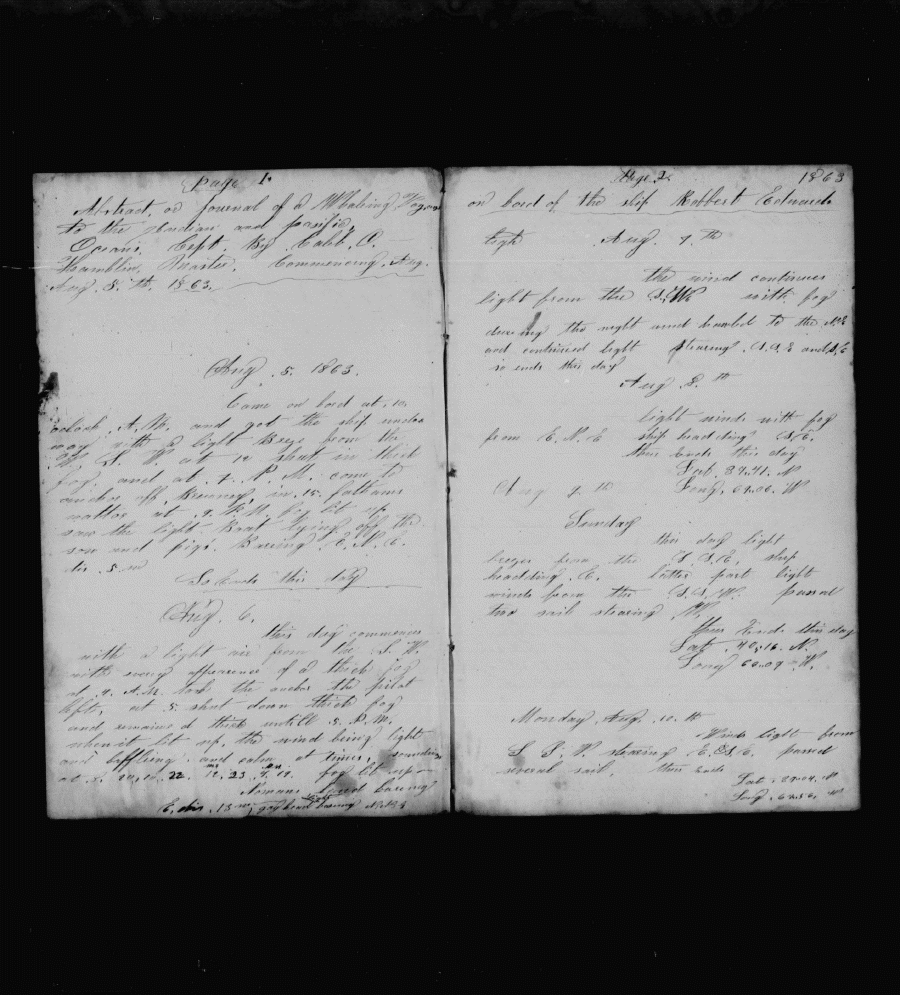 Page 1.
Abstract, or Journal of a Whaling Voyage
to the Indian and pacific
Oceans. Kept By Calib, O.
Hamblin, Master. Commencing. Aug.
Aug. 5. th. 1863.
Aug. 5. 1863.
Came on bord at, 10.
oclock, A. M. and got the ship under
way with a light Breze from the
W S. W. at 12 shut in thick
fog. and at . P. M. come to
anchor off in 15. fathoms
wattor at . 9. P. M. fog lit up.
saw the light Boat lying off the
sow and pigs. Baring E. N. E.
dis. 5. m
So Ends this day
Aug. 6.
this day commences
with a light air from the S. W.
with every apperence of a thick fog
at 9. A. M. took the anchor the pilot
left, at 5. shut down thick fog
and remained thick untill 5. P. M.
when it lit up. the wind being light
and baffling and calm at times,
at 22. 23, fog lit up
Nomans Land baring
E, dis. 13 m, gay head baring
Page 2. 1863
on bord of the ship Robbert Edwards
Aug. 7. th
the wind continues
light from the S. W. with fog
dureing the night wind hawled to the N. E
and continued light stearing S. S. E and S. E
so ends this day
Aug 8. th
light winds with fog
from E. N. E ship headding S. E.
thus Ends this day
Lat. 39.41. N
Aug 9. th Long. 69.06. W
Sunday
this day light
brezes from the S. S. E, ship
headding. E. latter part light
winds from the S. S. W. passed
two sail stearing W,
thus Ends this day
Lat. 40.16. N.
Long 68.09 W.
Monday, Aug. 10. th
Winds light from
S. S. W. stearing E. S. E. passed
severel sail. thus Ends
Lat. N
Long. W